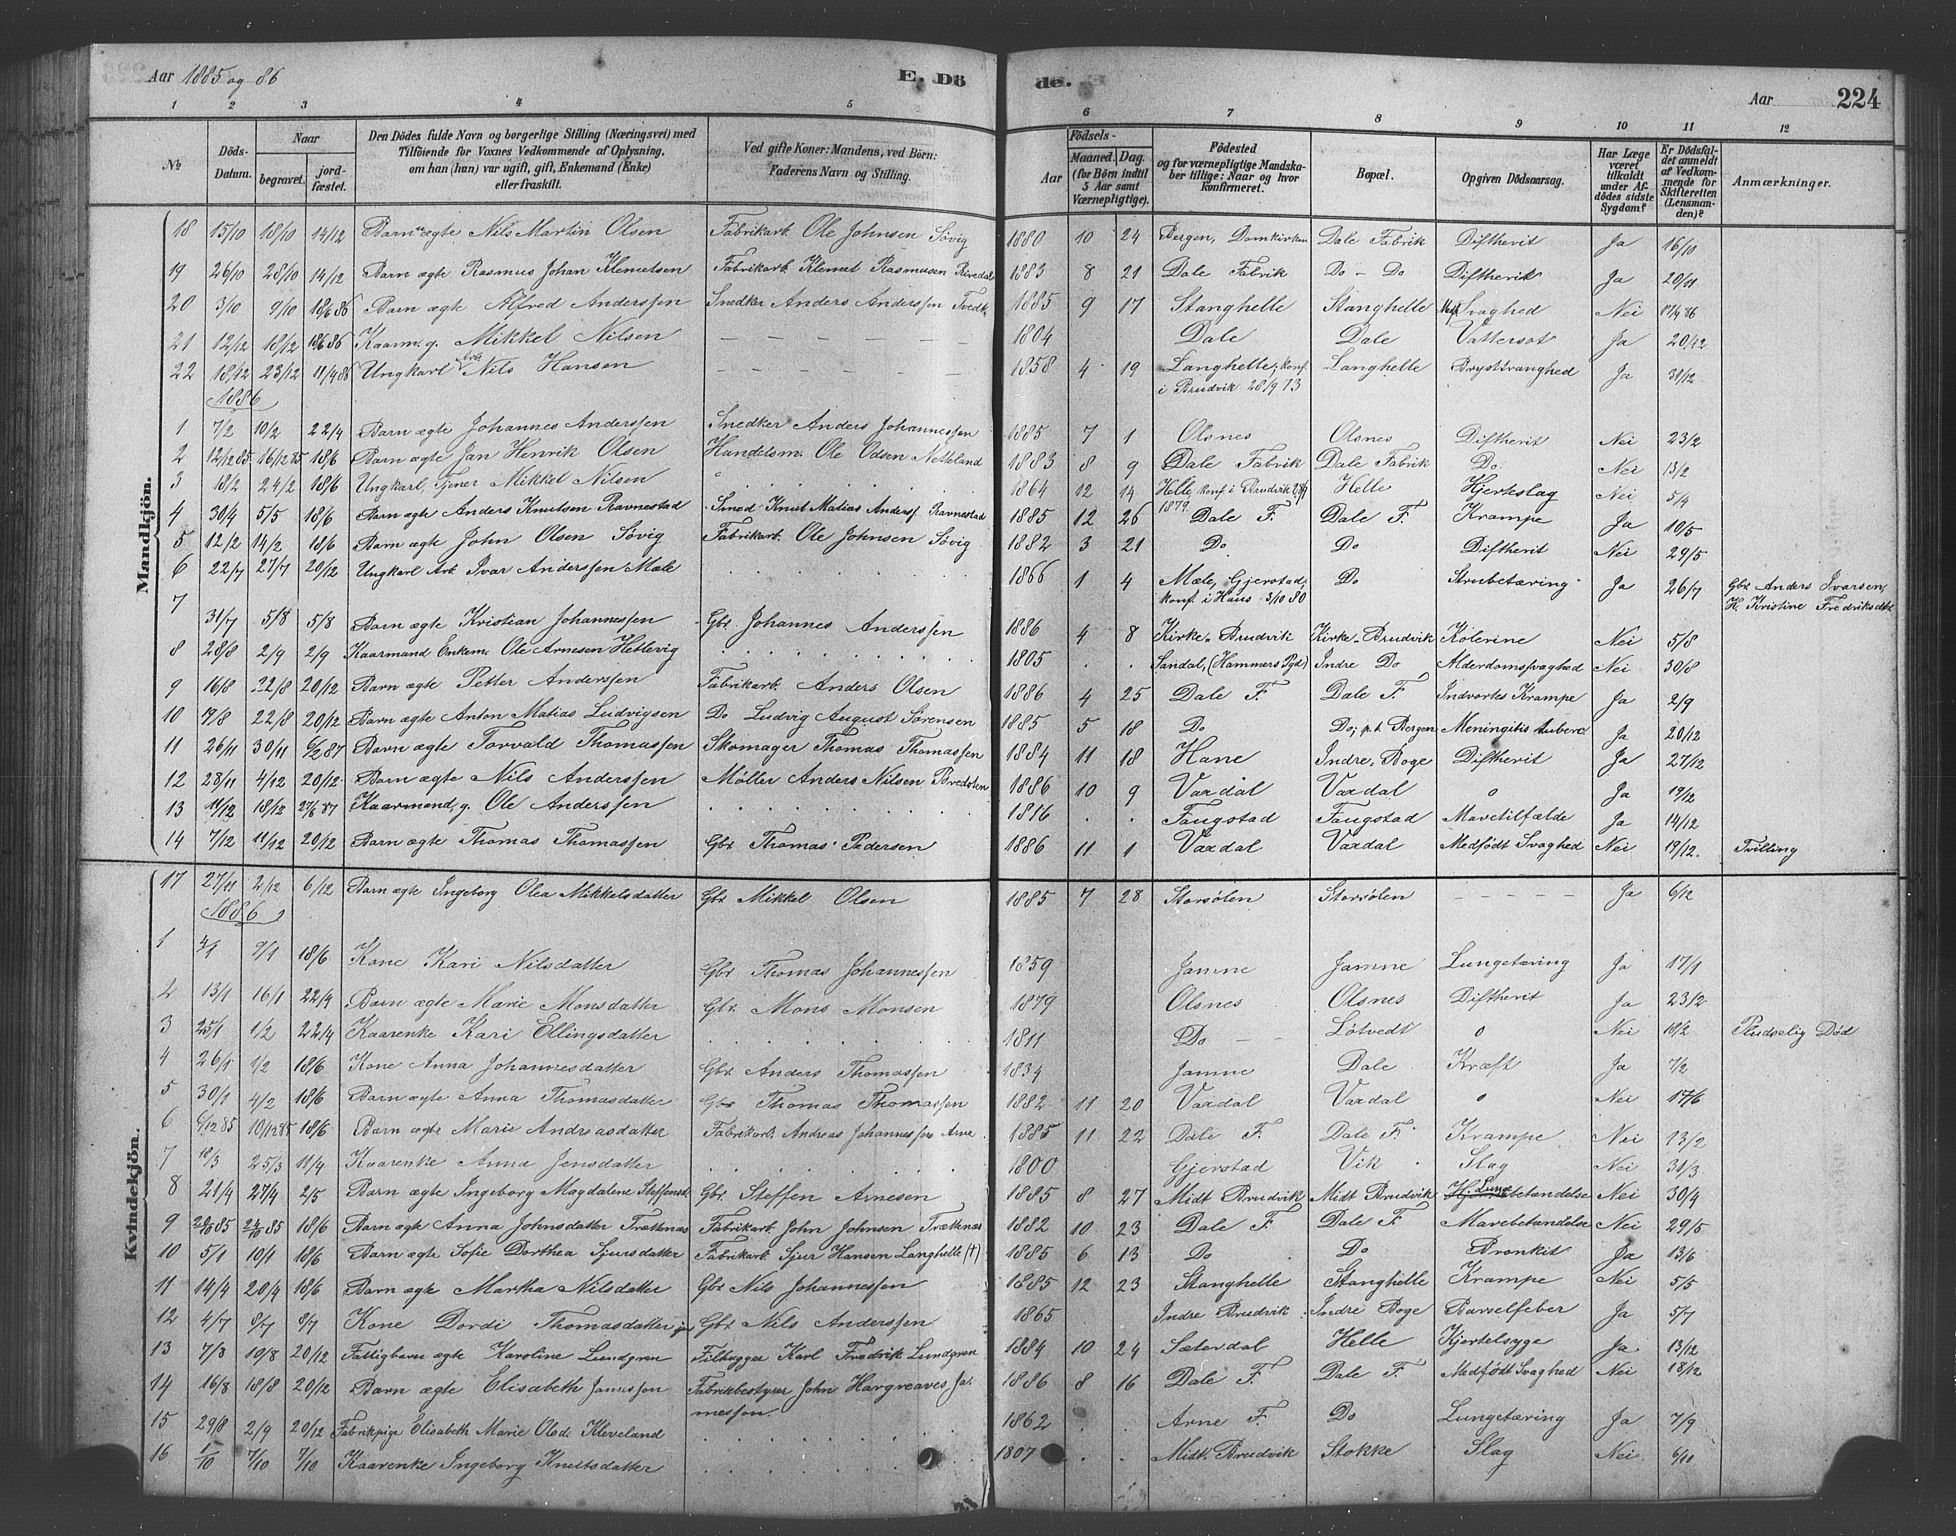 Aar 1885 og 86 E. Dö
de. Aar 224
1 2 3 4 5 6 7 8 9 10 11 12
№ Döds-Datum. Naar begravet. jordfæstet. Den Dödes fulde Navn og borgerlige Stilling (Næringsvei) med Tilföiende for Voxnes Vedkommende af Oplysning, om han (hun) var ugift, gift, Enkemand (Enke) eller fraskilt. Ved gifte Koner: Mandens, ved Börn: Faderens Navn og Stilling. Födsels- Aar Maaned. Dag. (for Börn indtil 5 Aar samt Værnepligtige). Födested og for værnepligtige Mandskaber tillige: Naar og hvor konfirmeret. Bopæl. Opgiven Dödsaarsag. Har Læge været tilkaldt under Afdödes sidste Sygdom? Er Dödsfaldet anmeldt af Vedkommende for Skifteretten (Lensmanden)? Anmærkninger.
Mandkjön.
18 15/10 18/10 14/12 Barn ægte Nils Martin Olsen Fabrikarb. Ole Johnsen Søvig 1880 10 24 Bergen, Domkirken Dale Fabrik Diftherit Ja 16/10
19 26/10 28/10 14/12 Barn ægte Rasmus Johan Klemetsen Fabrikarb. Klemet Rasmusen Rivedal 1883 8 21 Dale Fabrik Do - Do Diftherit Ja 20/11
20 3/10 9/10 18/6 86 Barn ægte Alfred Anderssen Snedker Anders Anderssen 1885 9 17 Stanghelle Stanghelle Svaghed Nei 17/4 86
21 12/12 18/12 18/6 86 Kaarm. g. Mikkel Nilsen - - - - - - 1804 Dale Dale Vattersot Ja 20/12
22 18/12 23/12 11/4 86 Ungkarl Nils Hansen - - - - - - 1858 4 19 Langhelle; konf. i Brudvik 28/9 73 Langhelle Ja 31/12
1886
1 7/2 10/2 22/4 Barn ægte Johannes Anderssen Snedker Anders Johannessen 1885 7 1 Olsnes Olsnes Diftherit Nei 23/2
2 12/12 85 16/12 85 18/6 Barn ægte Jan Henrik Olsen Handelsm. Ole Odsen Netteland 1883 8 9 Dale Fabrik Dale Fabrik Do. Nei 13/2
3 18/2 24/2 18/6 Ungkarl, Tjener Mikkel Nilsen 1864 12 14 Helle, konf. i Brudvik 1879 Helle Hjerteslag Nei 5/4
4 30/4 5/5 18/6 Barn ægte Anders Knutsen Ravnestad Smed Knut Matias Anderss. Ravnestad 1885 12 26 Dale F. Dale F. Krampe Ja 10/5
5 12/2 14/2 18/6 Barn ægte John Olsen Søvig Fabrikarb. Ole Johnsen Søvig 1882 3 21 Do. Do Diftherit Nei 29/5
6 22/7 27/7 20/12 Ungkarl Arb. Ivar Anderssen Mæle 1866 1 4 Mæle, Gjerstad, konf. i Haus 3/10 80 Do Strubetæring Ja 26/7 Gbr. Anders Ivarsen, H. Kristine Fredriksdtr.
7 31/7 5/8 5/8 Barn ægte Kristian Johannessen Gbr. Johannes Anderssen 1886 4 8 Kirke-Brudvik Kirke-Brudvik Kolerine Nei 5/8
8 28/8 2/9 2/9 Kaarmand Enkem. Ole Arnesen Hetlevig 1805 Sandal, (Hammers Pgd) Indre Do Alderdomssvaghed Nei 30/8
9 16/8 22/8 20/12 Barn ægte Petter Anderssen Fabrikarb. Anders Olsen 1886 4 25 Dale F. Dale F. Indvortes Krampe Ja 2/9
10 22/8 20/12 Barn ægte Anton Matias Ludvigsen Do Ludvig August Sørensen 1885 5 18 Do Do, p.t. Bergen Meningitis tuberc. Ja 20/12
11 26/11 30/11 6/2 87 Barn ægte Torvald Thomassen Skomager Thomas Thomassen 1884 11 18 Hane Indre-Boge Diftherit Ja 27/12
12 28/11 4/12 20/12 Barn ægte Nils Anderssen Møller Anders Nilsen 1886 10 9 Vaxdal Vaxdal o Ja 19/12
13 11/12 18/12 27/6 87 Kaarmand, g. Ole Anderssen 1816 Faugstad Faugstad Mavetilfælde Ja 14/12
14 7/12 11/12 20/12 Barn ægte Thomas Thomassen Gbr. Thomas Pedersen 1886 11 1 Vaxdal Vaxdal Medfødt Svaghed Nei 19/12. Tvilling
Kvindekjön.
17 27/11 2/12 6/12 Barn ægte Ingeborg Olea Mikkelsdatter Gbr. Mikkel Olsen 1885 7 28 Storsølen Storsølen - - - - - Ja 6/12
1886
1 4/1 9/1 18/6 Kone Kari Nilsdatter Gbr Thomas Johannessen 1859 Jamne Jamne Lungetæring Ja 17/1
2 13/1 16/1 22/4 Barn ægte Marie Monsdatter Gbr. Mons Monsen 1879 Olsnes Olsnes Diftherit Ja 23/2
3 25/1 1/2 22/4 Kaarenke Kari Ellingsdatter 1811 Do - - Løtvedt o Nei 10/2 Pludselig Død
4 26/1 1/2 18/6 Kone Anna Johannesdatter Gbr. Anders Thomassen 1834 Jamne Dale Kræft Ja 7/2
5 30/1 4/2 18/6 Barn ægte Anna Thomasdatter Gbr Thomas Thomassen 1882 11 20 Vaxdal Vaxdal o Nei 17/6
6 6/12 85 10/12 85 18/6 Barn ægte Marie Andreasdatter Fabrikarb. Andreas Johannessen Arne 1885 11 22 Dale F. Dale F. Krampe Nei 13/2
7 18/3 25/3 11/4 Kaarenke Anna Jensdatter 1800 Gjerstad Vik Slag Nei 31/3
8 21/4 27/4 2/5 Barn ægte Ingeborg Magdalene Steffensd. Gbr. Steffen Arnesen 1885 8 27 Midt Brudvik Midt Brudvik Lungebetændelse Nei 30/4
9 18/6 Barn ægte Anna Johnsdatter Trætknæs Fabrikarb. John Johnsen Trætknæs 1882 10 23 Dale F. Dale F. Mavebetændelse Nei 29/5
10 5/1 10/1 18/6 Barn ægte Sofie Dorthea Sjursdatter Fabrikarb. Sjur Hansen Langhelle (†) 1885 6 13 Do Do Bronkit Ja 13/6
11 14/4 20/4 18/6 Barn ægte Martha Nilsdatter Gbr. Nils Johannessen 1885 12 23 Stanghelle Stanghelle Krampe Nei 5/5
12 4/7 8/7 8/7 Kone Dordi Thomasdatter Gbr. Nils Anderssen 1865 Indre Brudvik Indre Boge Barselfeber Ja 5/7
13 7/8 10/8 20/12 Fattigbarn ægte Karoline Lundgren Filhugger Karl Fredrik Lundgren 1884 10 24 Sæterdal Helle Kjertelsyge Ja 13/12
14 16/8 18/8 20/12 Barn ægte Elisabeth Jamessen Fabrikbestyrer John Hargreaves Jamessen. 1886 8 16 Dale F. Dale F. Medfødt Svaghed Nei 18/12
15 29/8 2/9 20/12 Fabrikpige Elisabeth Marie Olsd. Kleveland 1862 Arne F. Do Lungetæring Ja 7/9
16 1/10 7/10 7/10 Kaarenke Ingeborg Knutsdatter 1807 Midt. Brudvik Stokke Slag Nei 6/11